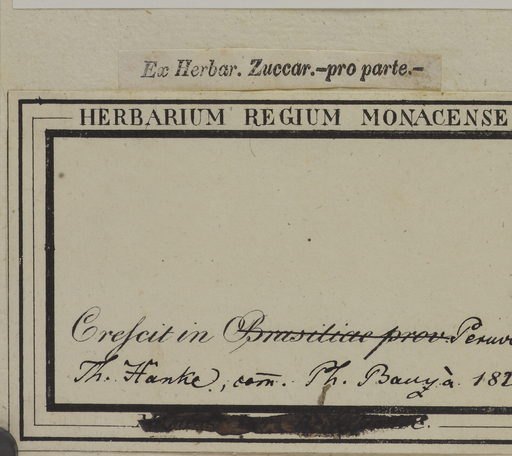 Ex Herbar. Zuccar.-pro parte.-
HERBARIUM REGIUM MONACENSE
Creſcit in Brasiliae prov. Peruv
Th. Hänke, com̄. Ph. Bauzà 182